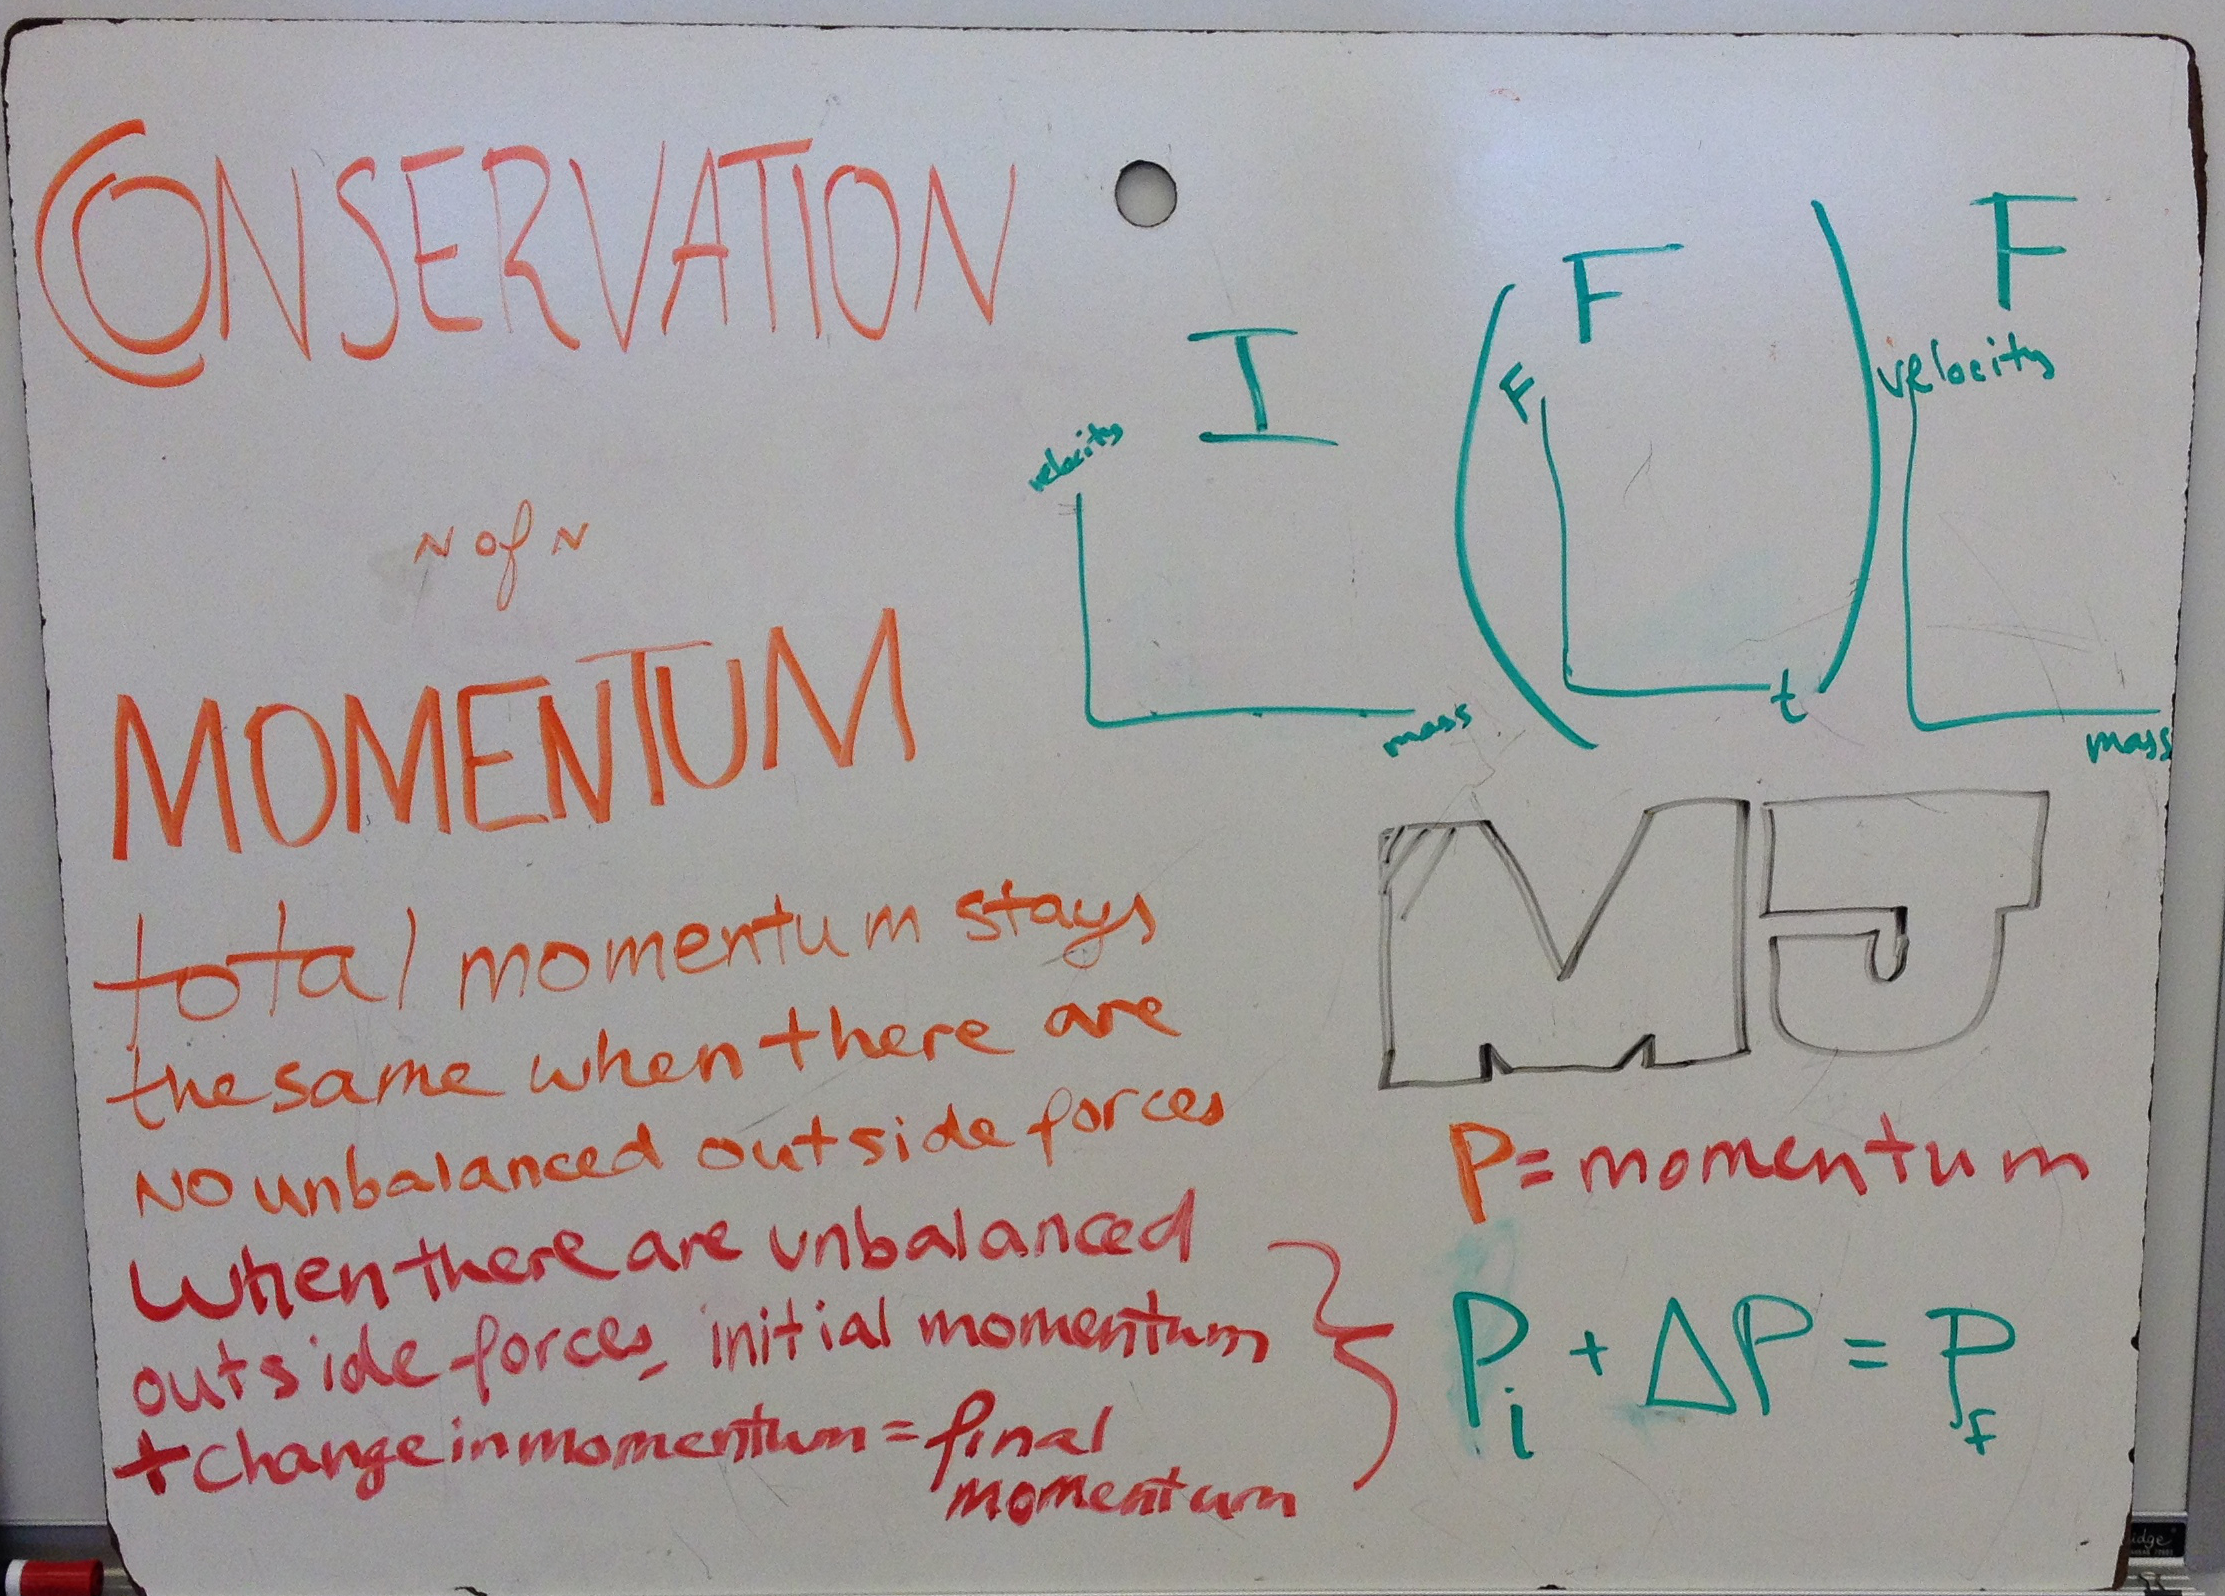 CONSERVATION
~ of ~
MOMENTUM
total momentum stays
the same when there are
NO unbalanced outside forces
When there are unbalanced
outside forces, initial momentum
+ change in momentum = final
momentum
I
velocity
mass
F
F
t
F
velocity
mass
MJ
P = momentum
Pi + ΔP = Pf